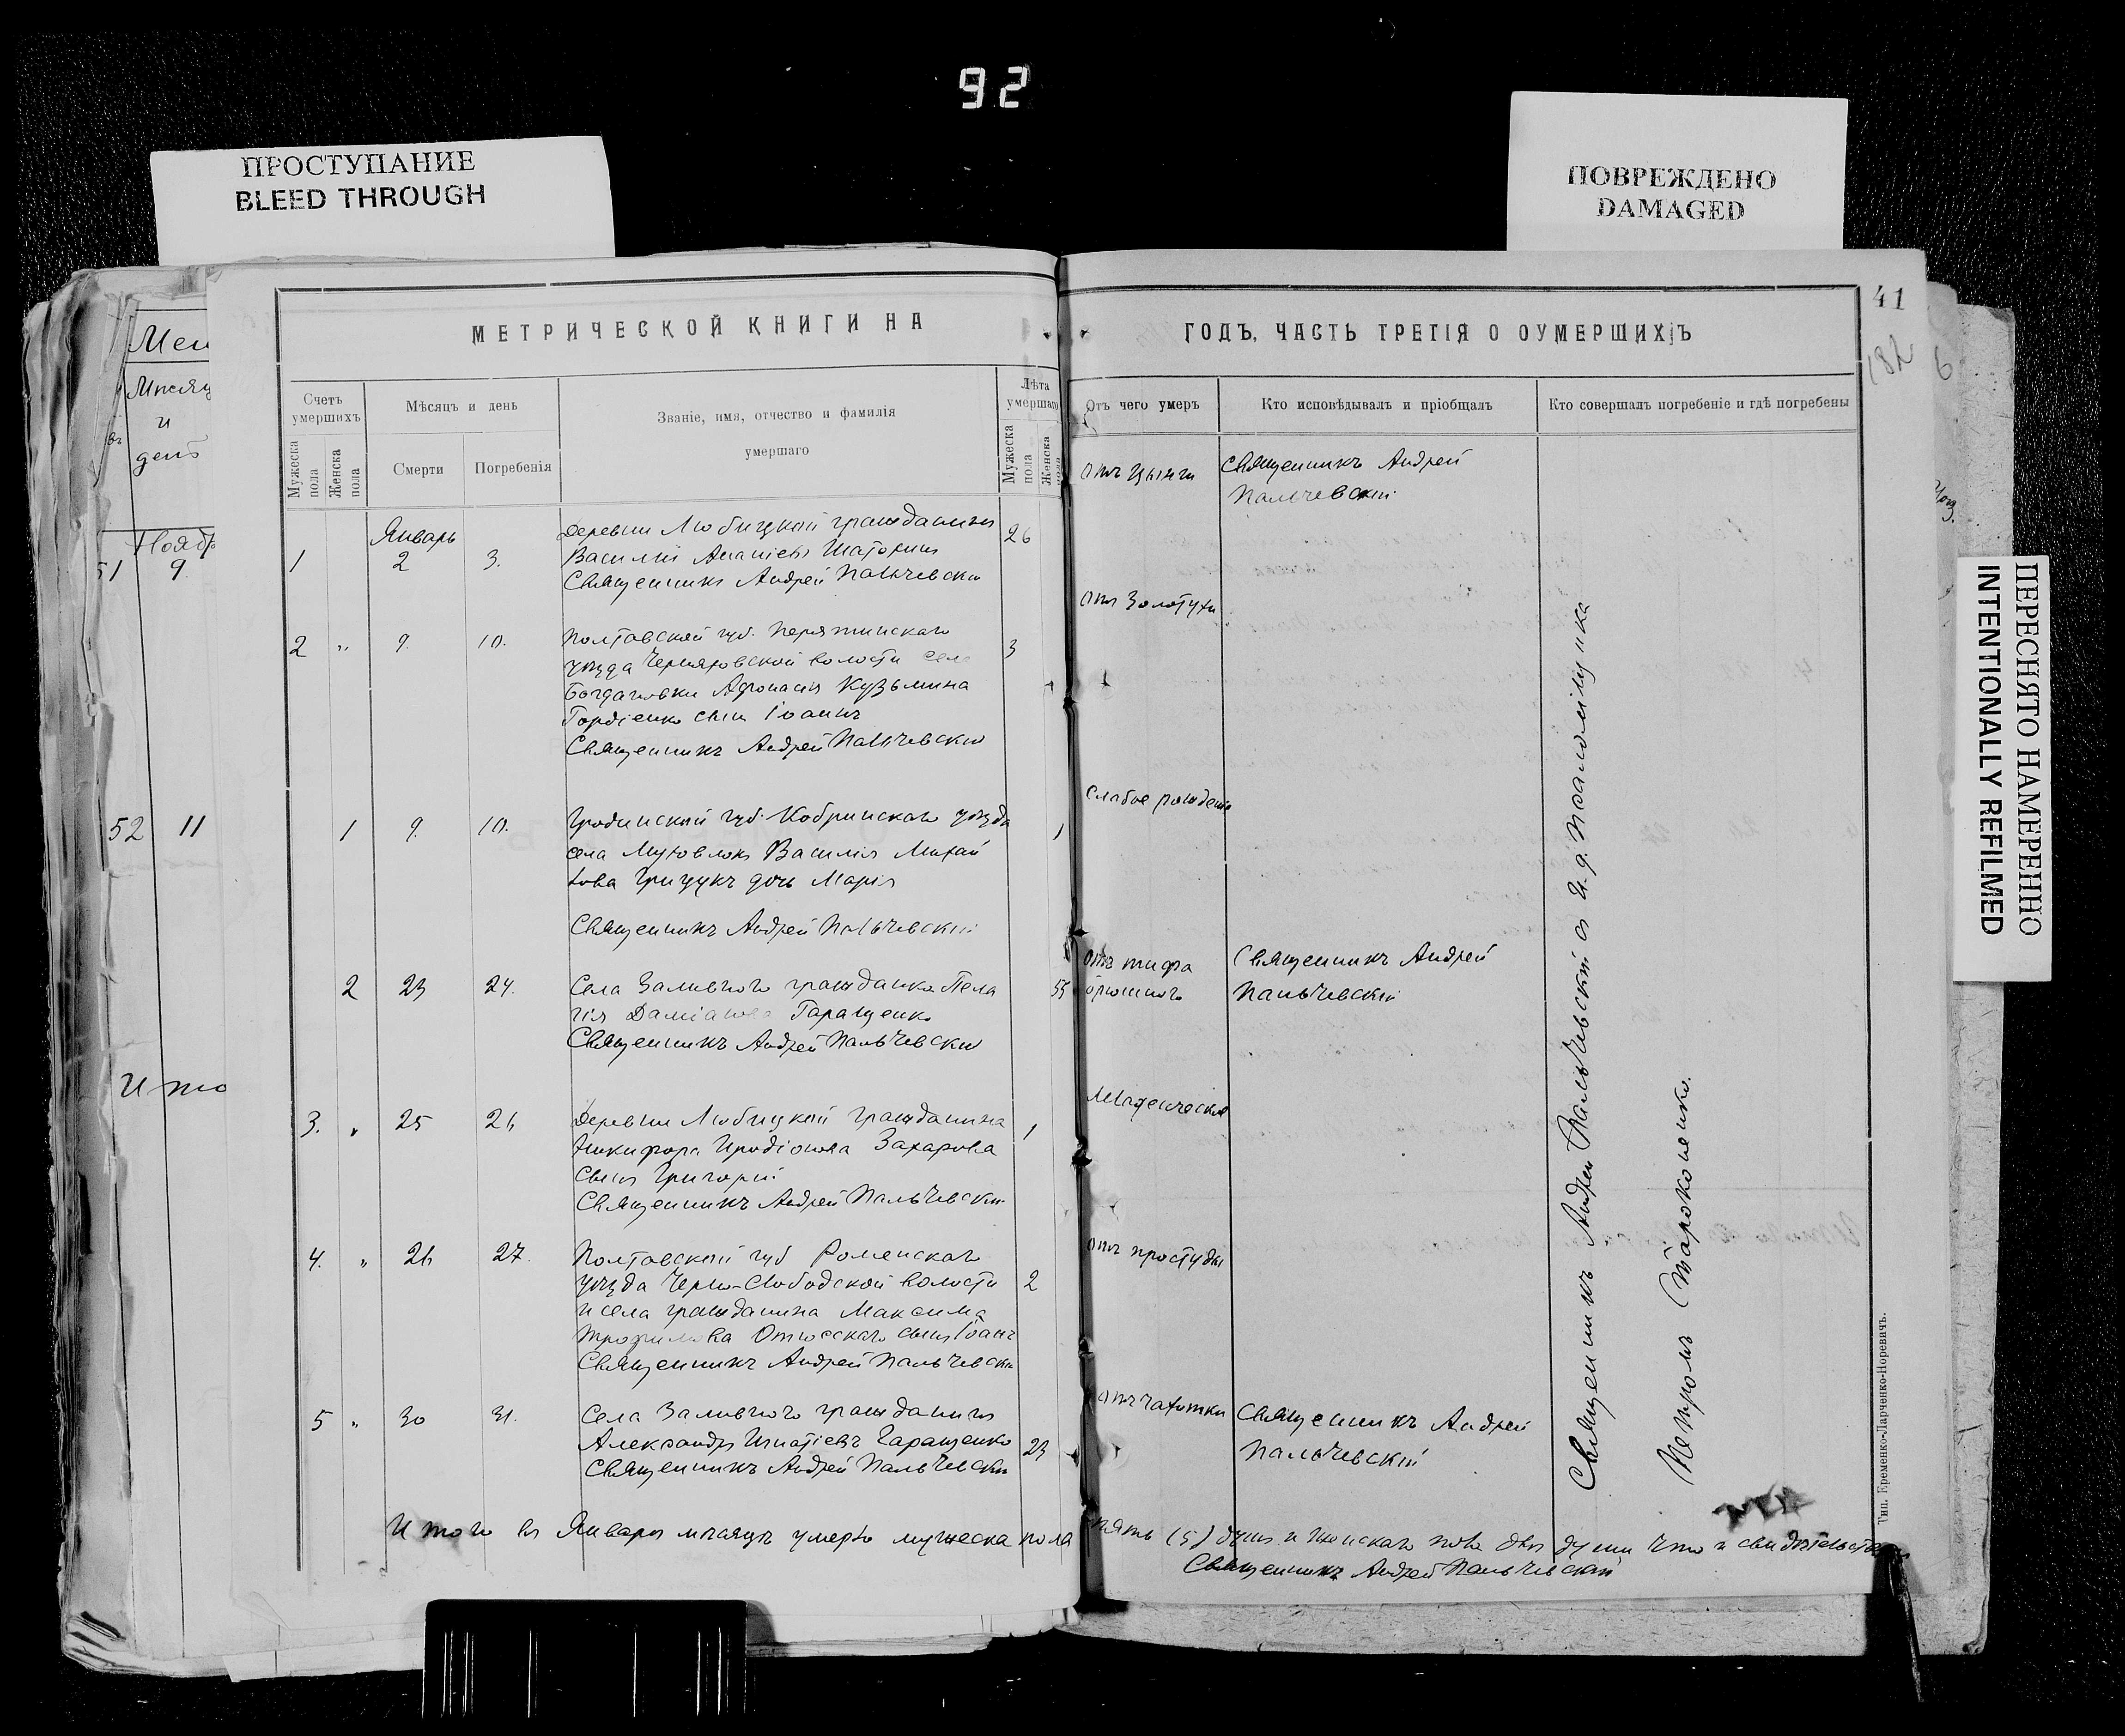 92
ПРОСТУПАНИЕ
BLEED THROUGH
ПОВРЕЖДЕНО
DAMAGED
ПЕРЕСНЯТО НАМЕРЕННО
INTENTIONALLY REFILMED
41
182
6
Мѣсяц
и
день
Ноябр
51 9
52 11
Ито
МЕТРИЧЕСКОЙ КНИГИ НА
Счетъ умершихъ
Мужеска пола
Женска пола
Мѣсяцъ и день
Смерти
Погребенія
Званіе, имя, отчество и фамилія
умершаго
Лѣта умершаго
Мужеска пола
Женска пола
Январь
1 2 3. 26
Деревни Любицкой гражданинъ
Василій Ананіевъ
Священникъ Андрей Пальчевскій
2 " 9. 10. 3
Полтавской губ. Пирятинскаго
уѣзда Черняховской волости села
Богдановки Афонасія Кузьмина
Гордіенко сынъ Іоаннъ
Священникъ Андрей Пальчевскій
1 9. 10. 1
Гродненской губ. Кобринскаго уѣзда
села Василія Михай
лова Грицукъ дочь Марія
Священникъ Андрей Пальчевскій
2 23 24. 55
Села Заливного гражданка Пела
гія Даміанова Таращенко
Священникъ Андрей Пальчевскій
3. " 25 26 1
Деревни Любицкой гражданина
Никифора Иродіонова Захарова
сынъ Григорій
Священникъ Андрей Пальчевскій
4. " 26 27 2
Полтавской губ Роменскаго
уѣзда Черно-Слободской волости
и села гражданина Максима
Трофимова сынъ Іоаннъ
Священникъ Андрей Пальчевскій
5 " 30 31. 23
Села Заливного гражданинъ
Александръ Игнатіевъ Таращенко
Священникъ Андрей Пальчевскій
Итого въ Январѣ мѣсяцѣ умерло мужеска пола
ГОДЪ, ЧАСТЬ ТРЕТІЯ О ОУМЕРШИХЪ
Отъ чего умеръ
Кто исповѣдывалъ и пріобщалъ
Кто совершалъ погребеніе и гдѣ погребены
Отъ цынги
Священникъ Андрей
Пальчевскій
Отъ золотухи
Слабое рожденіе
Отъ тифа
брюшного
Священникъ Андрей
Пальчевскій
Младенческая
Отъ простуды
Отъ чахотки
Священникъ Андрей
Пальчевскій
Священникъ Андрей Пальчевскій съ и. д. Псаломщика
Петромъ Старокопенко.
пять (5) душъ и женскаго пола двѣ души что и свидѣтельствую
Священникъ Андрей Пальчевскій
Тип. Еременко-Ларченко-Норевичъ.